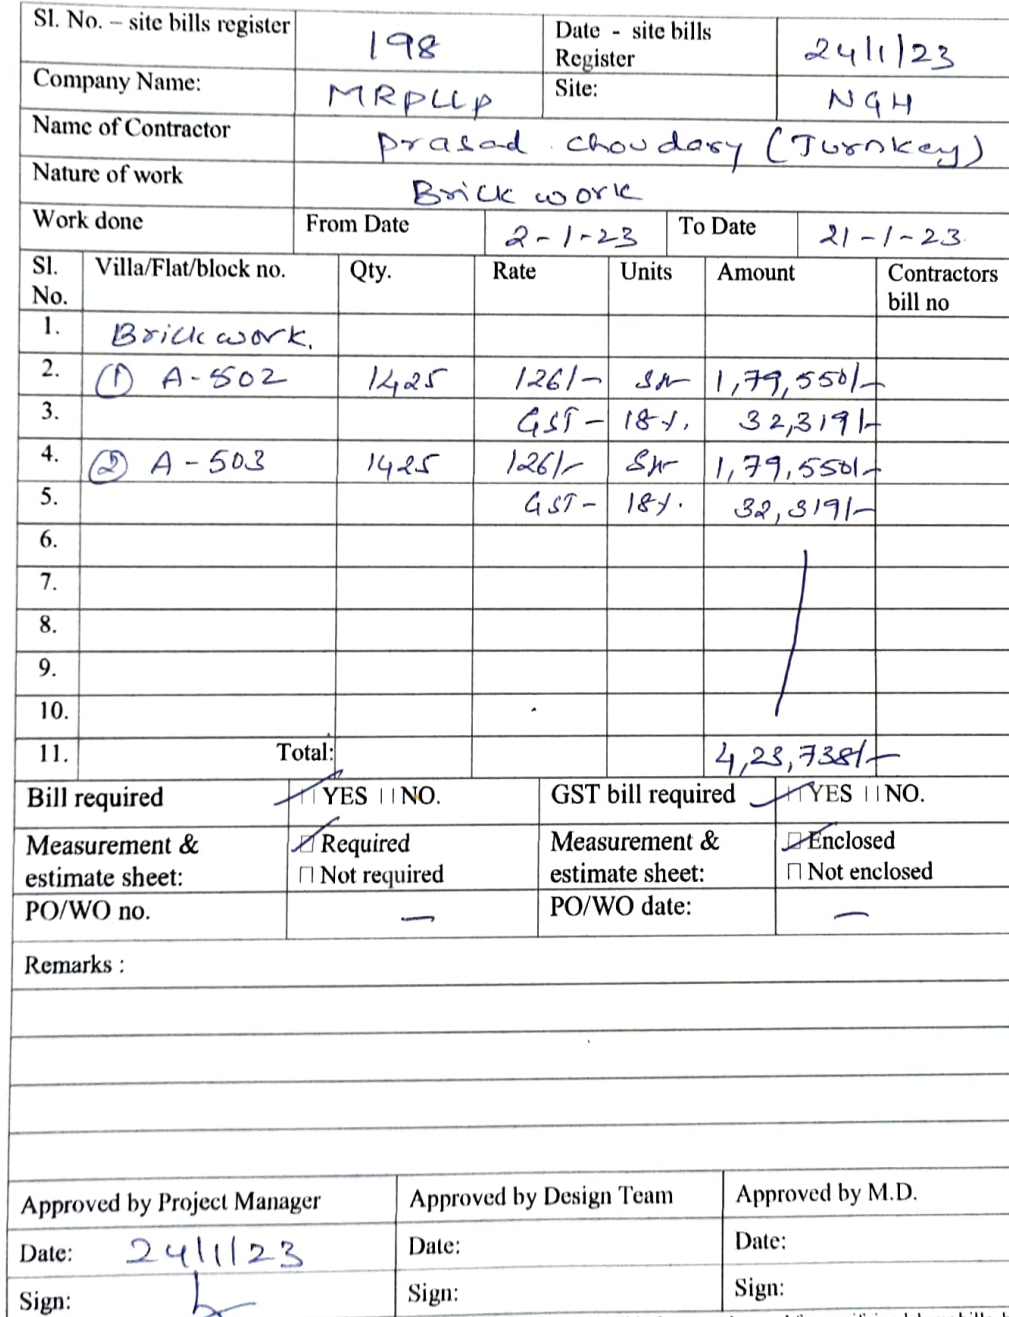 Sl. No. – site bills register 198 Date - site bills Register 24/1/23
Company Name: MRPLLP Site: NGH
Name of Contractor Prasad choudary (Turnkey)
Nature of work Brick work
Work done From Date 2-1-23 To Date 21-1-23
Sl. No. Villa/Flat/block no. Qty. Rate Units Amount Contractors bill no
1. Brick work.
2. (1) A-502 1425 126/- 1,79,550/-
3. GST - 18%. 32,319/-
4. (2) A-503 1425 126/- 1,79,550/-
5. GST - 18%. 32,319/-
6.
7.
8.
9.
10.
11. Total: 4,23,738/-
Bill required YES NO. GST bill required YES NO.
Measurement & estimate sheet: Required Measurement & estimate sheet: Enclosed
Not required Not enclosed
PO/WO no. — PO/WO date: —
Remarks :
Approved by Project Manager Approved by Design Team Approved by M.D.
Date: 24/1/23 Date: Date:
Sign: Sign: Sign: